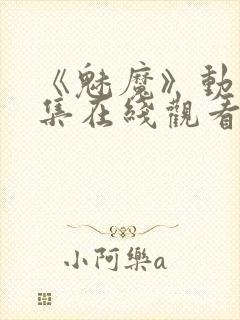 《魅魔》動
集在綫觀看
小阿樂a